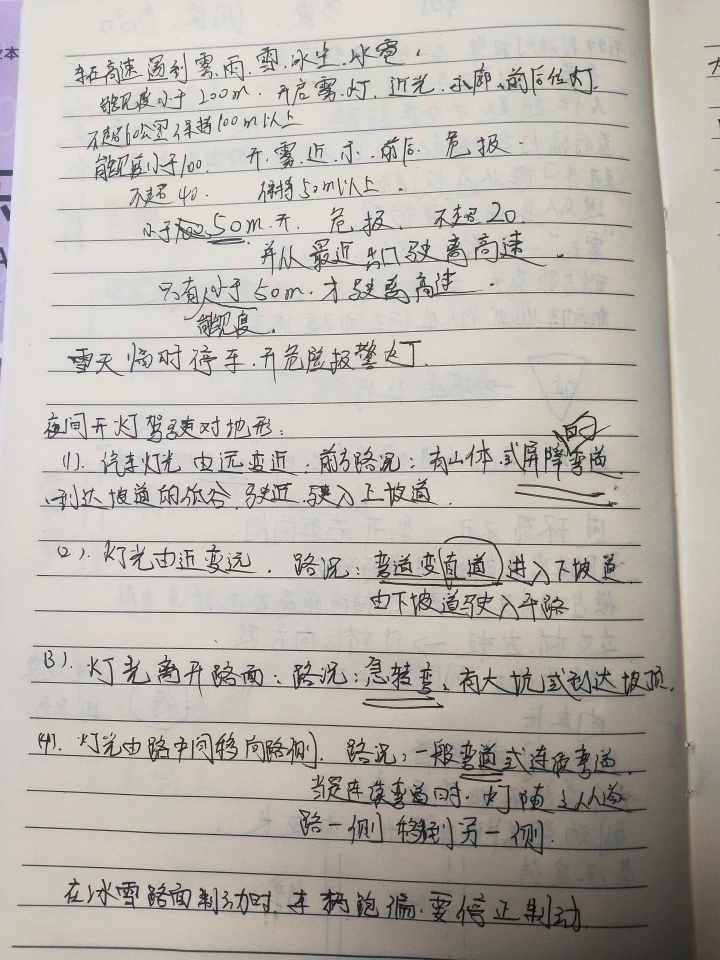 车在高速遇到雾.雨.雪.冰尘.冰雹,
能见度小于200m.开启雾.灯.近光.示廓.前后位灯.
不超60公里保持100m以上
能见度小于100. 开.雾.近.示.前后. 危报.
不超40. 保持50m以上.
小于50m.开. 危.报. 不超20.
并从最近出口驶离高速.
只有小于50m.才驶离高速.
能见度.
雪天临时停车.开危险报警灯.
夜间开灯驾驶对地形:
(1). 汽车灯光由远变近.前方路况:有山体.或屏障弯道.
到达坡道的低谷.驶近.驶入上坡道.
(2). 灯光由近变远. 路况:弯道变直道,进入下坡道.
由下坡道驶入平路
(3). 灯光离开路面:路况:急转弯、有大坑或到达坡顶.
(4). 灯光由路中间移向路侧. 路况:一般弯道或连续弯道.
当是连续弯道时.灯随之从道
路一侧移到另一侧.
在冰雪路面制动时.车辆跑偏.要停止制动.